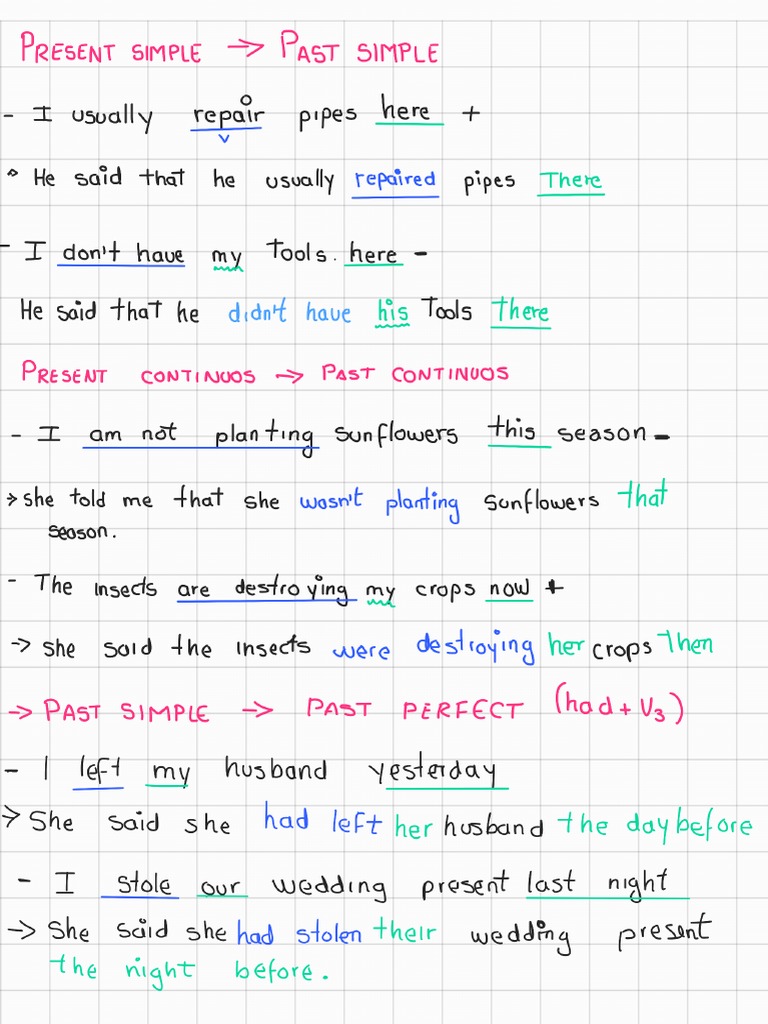 PRESENT SIMPLE → PAST SIMPLE
- I usually repair pipes here +
v
° He said that he usually repaired pipes There
- I don't have my Tools. here -
He said that he didn't have his Tools there
PRESENT CONTINUOS → PAST CONTINUOS
- I am not planting sunflowers this season -
→ she told me that she wasn't planting sunflowers that
season.
- The insects are destroying my crops now +
→ she said the insects were destroying her crops Then
→ PAST SIMPLE → PAST PERFECT (had + V3)
- I left my husband yesterday
→ She said she had left her husband the day before
- I stole our wedding present last night
→ She said she had stolen their wedding present
the night before.